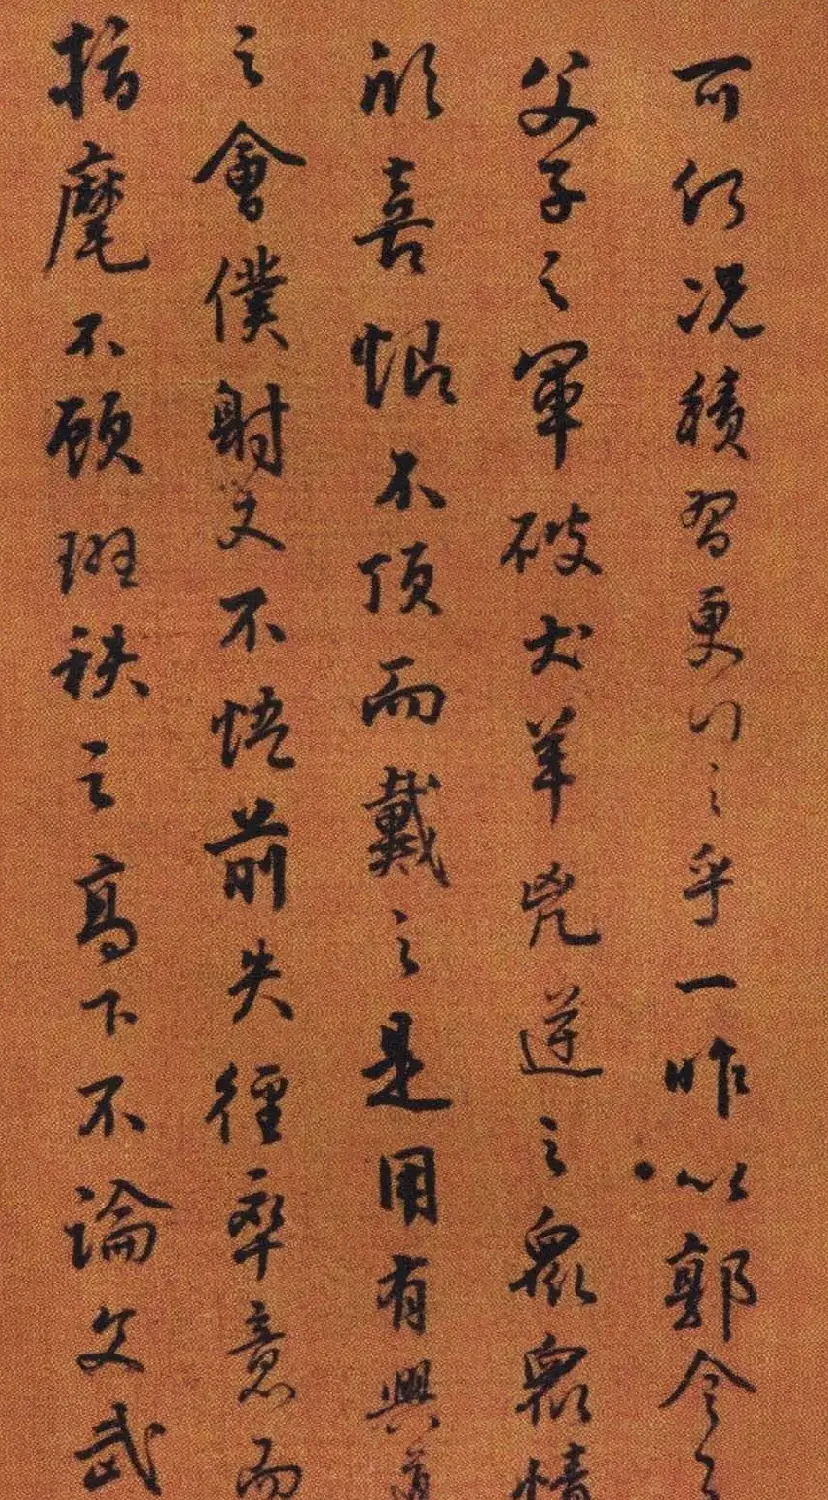 可仍況積習更行之乎一昨以郭令公
父子之軍破犬羊兇逆之眾眾情
欣喜恨不頂而戴之是用有興道
之會僕射又不悟前失徑率意而
指麾不顧班秩之高下不論文武